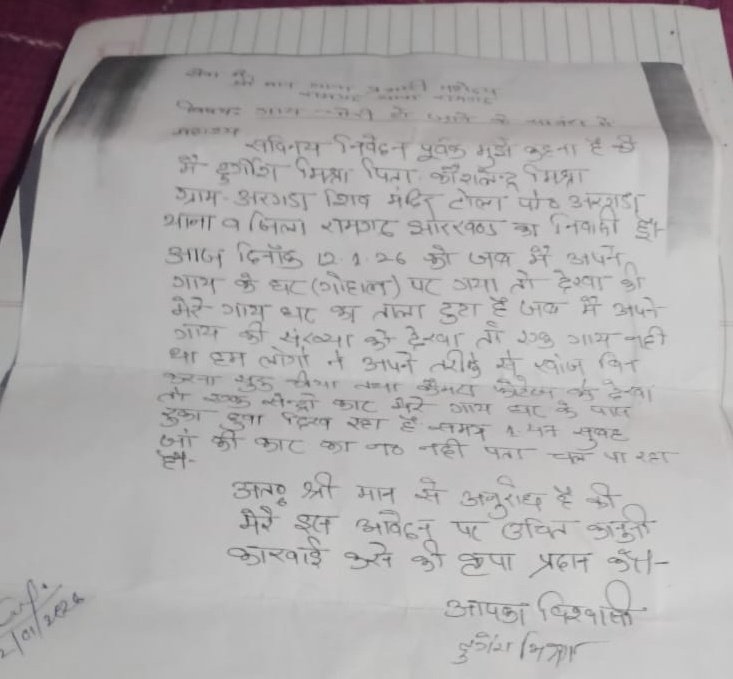 सेवा में
श्री मान थाना प्रभारी महोदय
रामगढ़ थाना रामगढ़
विषयः गाय चोरी हो जाने के संबंध में
महाशय
सविनय निवेदन पूर्वक मुझे कहना है की
मैं दुर्गेश मिश्रा पिता कौशलेन्द्र मिश्रा
ग्राम-अरगडा शिव मंदिर टोला पो० अरगडा
थाना व जिला रामगढ झारखण्ड का निवासी हूँ।
आज दिनाँक 12.1.26 को जब मैं अपने
गाय के घर (गोहाल) पर गया तो देखा की
मेरे गाय घर का ताला टुटा है जब मैं अपने
गाय की संख्या को देखा तो एक गाय नही
था हम लोगों ने अपने तरीके से खोज बिन
करना शुरू किया तथा कैमरा फोटेज को देखा
तो एक सेन्ट्रो काट मेरे गाय घर के पास
रुका हुवा दिख रहा है समय 1.47 सुबह
जो की काट का न० नही पता चल पा रहा
है।-
अतः श्री मान से अनुरोध है की
मेरे इस आवेदन पर उचित कानुनी
कारवाई करने की कृपा प्रदान करें।-
आपका विश्वासी
दुर्गेश मिश्रा
2/01/2026